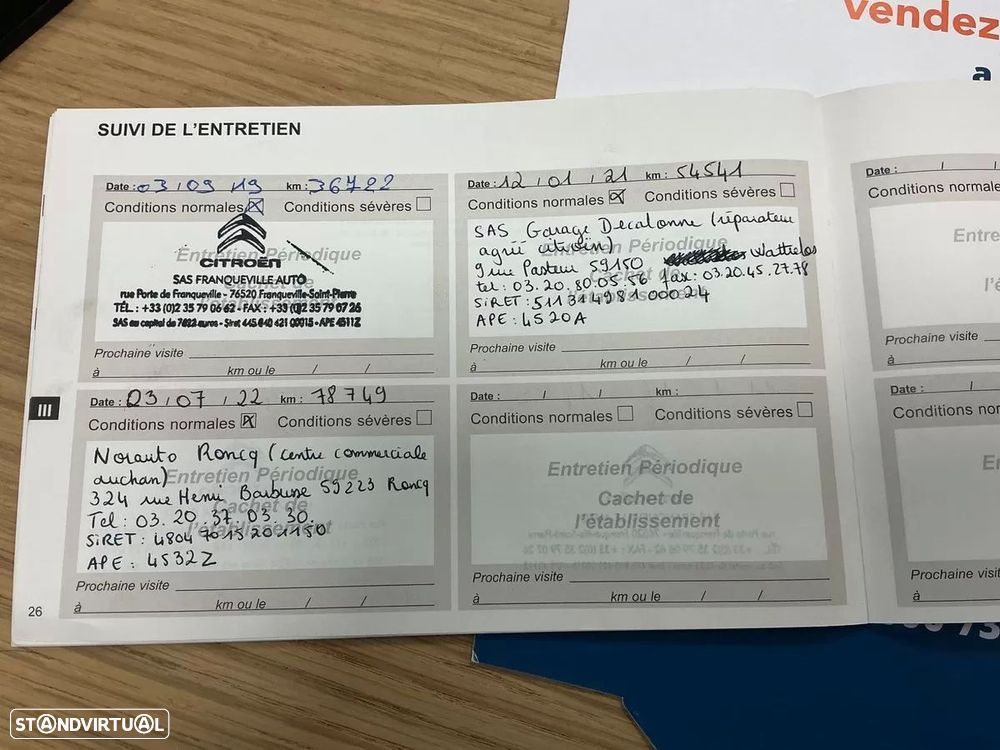 vendez
a
SUIVI DE L'ENTRETIEN
Date : 03 / 09 / 19 km : 36722
Conditions normales Conditions sévères
Entretien Périodique
CITROËN
SAS FRANQUEVILLE AUTO
rue Porte de Franqueville - 76520 Franqueville-Saint-Pierre
TÉL. : +33 (0)2 35 79 06 62 - FAX : +33 (0)2 35 79 07 26
SAS au capital de 7622 euros - Siret 445 840 421 00015 - APE 4511Z
Prochaine visite
à km ou le / /
Date : 12 / 01 / 21 km : 54541
Conditions normales Conditions sévères
Entretien Périodique
Cachet de
l'établissement
SAS Garage Decalonne (réparateur
agréé citroën)
9 rue Pasteur 59150 Wattrelos
tel : 03.20.80.05.56 fax : 03.20.45.27.78
SIRET : 511314981 00024
APE : 4520A
Prochaine visite
à km ou le / /
Date : 03 / 07 / 22 km : 78749
Conditions normales Conditions sévères
Entretien Périodique
Cachet de
l'établissement
Norauto Roncq (centre commerciale
auchan)
324 rue Henri Barbusse 59223 Roncq
Tel : 03. 20 37 03 30.
SIRET : 4804701520 01150
APE : 4532Z
Prochaine visite
à km ou le / /
Date : / / km :
Conditions normales Conditions sévères
Entretien Périodique
Cachet de
l'établissement
Prochaine visite
à km ou le / /
Date : / /
Conditions normale
Entre
l'é
Prochaine visite
à
Date : /
Conditions nor
E
Prochaine vis
à
III
26
STANDVIRTUAL